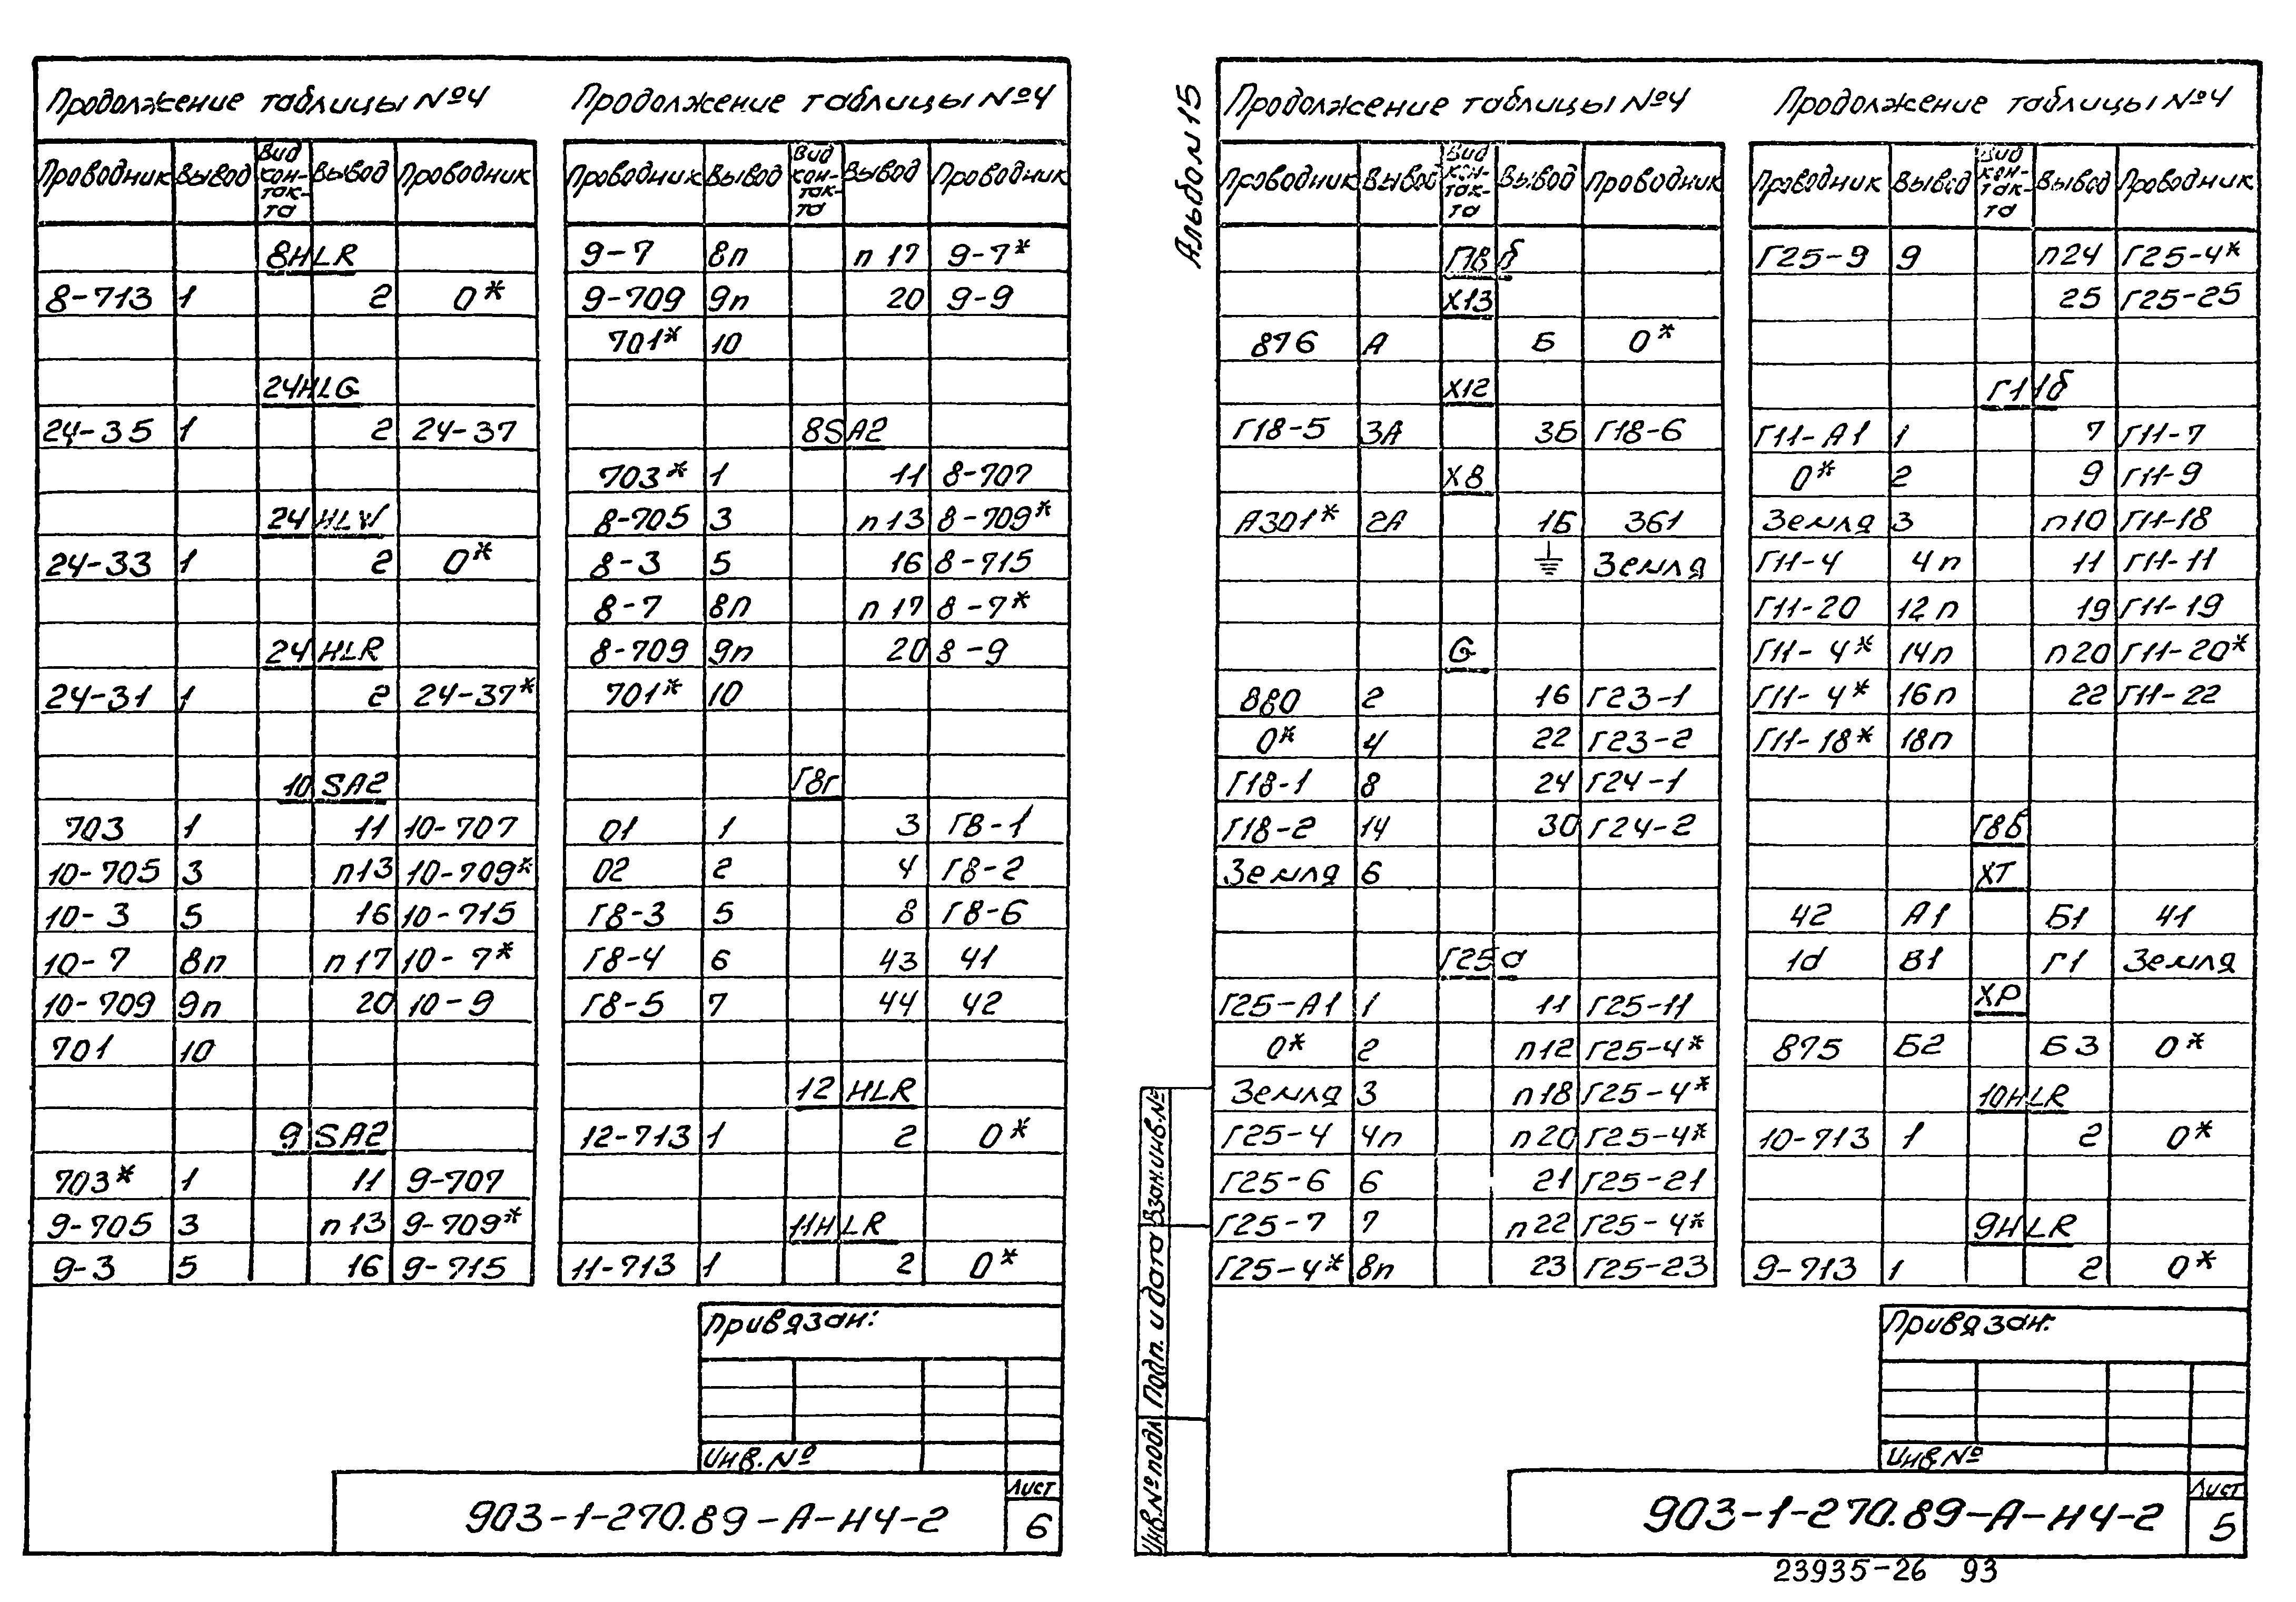 Продолжение таблицы №4
Проводник Вывод Вид кон-так-та Вывод Проводник
8HLR
8-713 1 2 0*
24HLG
24-35 1 2 24-37
24HLW
24-33 1 2 0*
24HLR
24-31 1 2 24-37*
10SA2
703 1 11 10-707
10-705 3 п13 10-709*
10-3 5 16 10-715
10-7 8п п17 10-7*
10-709 9п 20 10-9
701 10
9SA2
703* 1 11 9-707
9-705 3 п13 9-709*
9-3 5 16 9-715
Продолжение таблицы №4
Проводник Вывод Вид кон-так-та Вывод Проводник
9-7 8п п17 9-7*
9-709 9п 20 9-9
701* 10
8SA2
703* 1 11 8-707
8-705 3 п13 8-709*
8-3 5 16 8-715
8-7 8п п17 8-7*
8-709 9п 20 8-9
701* 10
Г8г
01 1 3 Г8-1
02 2 4 Г8-2
Г8-3 5 8 Г8-6
Г8-4 6 43 41
Г8-5 7 44 42
12HLR
12-713 1 2 0*
11HLR
11-713 1 2 0*
Привязан:
Инв.№
903-1-270.89-А-Н4-2
Лист
6
Альбом 15
Продолжение таблицы №4
Проводник Вывод Вид кон-так-та Вывод Проводник
Г18б
X13
876 А Б 0*
X12
Г18-5 3А 3Б Г18-6
X8
А301* 2А 1Б 361
⏚ Земля
G
880 2 16 Г23-1
0* 4 22 Г23-2
Г18-1 8 24 Г24-1
Г18-2 14 30 Г24-2
Земля 6
Г25а
Г25-А1 1 11 Г25-11
0* 2 п12 Г25-4*
Земля 3 п18 Г25-4*
Г25-4 4п п20 Г25-4*
Г25-6 6 21 Г25-21
Г25-7 7 п22 Г25-4*
Г25-4* 8п 23 Г25-23
Продолжение таблицы №4
Проводник Вывод Вид кон-так-та Вывод Проводник
Г25-9 9 п24 Г25-4*
25 Г25-25
Г11б
Г11-А1 1 7 Г11-7
0* 2 9 Г11-9
Земля 3 п10 Г11-18
Г11-4 4п 11 Г11-11
Г11-20 12п 19 Г11-19
Г11-4* 14п п20 Г11-20*
Г11-4* 16п 22 Г11-22
Г11-18* 18п
Г8б
XT
42 А1 Б1 41
1d В1 Г1 Земля
XP
875 Б2 Б3 0*
10HLR
10-713 1 2 0*
9HLR
9-713 1 2 0*
Инв.№ подл. Подп. и дата Взам.инв.№
Привязан:
Инв.№
903-1-270.89-А-Н4-2
Лист
5
23935-26 93